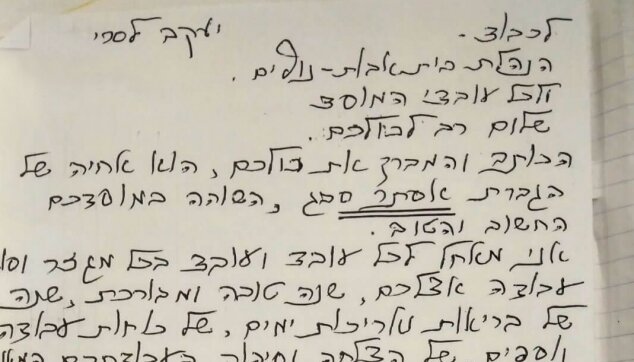 יעקב לסרי
לכבוד.
הנהלת בית אבות-נופים.
ולכל עובדי המוסד
שלום רב לכולכם.
הכותב והמברך את כולכם, הוא אחיה של
הגברת אסתר סבג, השוהה במוסדכם
החשוב והטוב.
אני מאחל לכל עובד ועובד בכל מגזר
עבודה אצלכם, שנה טובה ומבורכת, שנה
של בריאות ואריכות ימים, של כוחות עבודה
של הצלחה